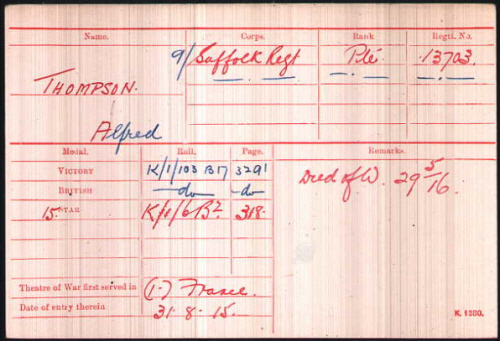 Name. Corps. Rank Regtl. No.
THOMPSON. 9/Suffolk Regt Pte. 13703.
—"— —"— —"—
Alfred
Medal. Roll. Page. Remarks.
VICTORY K/1/103 B17 3291 Died of W. 29/5/16.
BRITISH —do— —do
15 STAR K/1/6 B2 318.
Theatre of War first served in (1-) France.
Date of entry therein 31.8.15.
K. 1380.